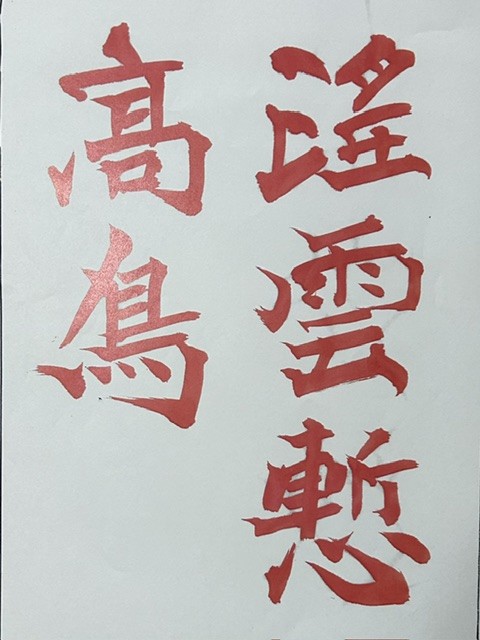 望雲慙
高鳥